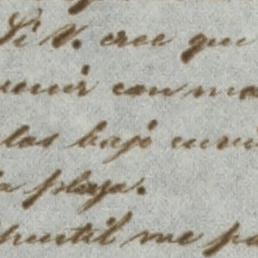 Si V. cree que
venir con ma
las bajo envi
la playa.
inutil me pa